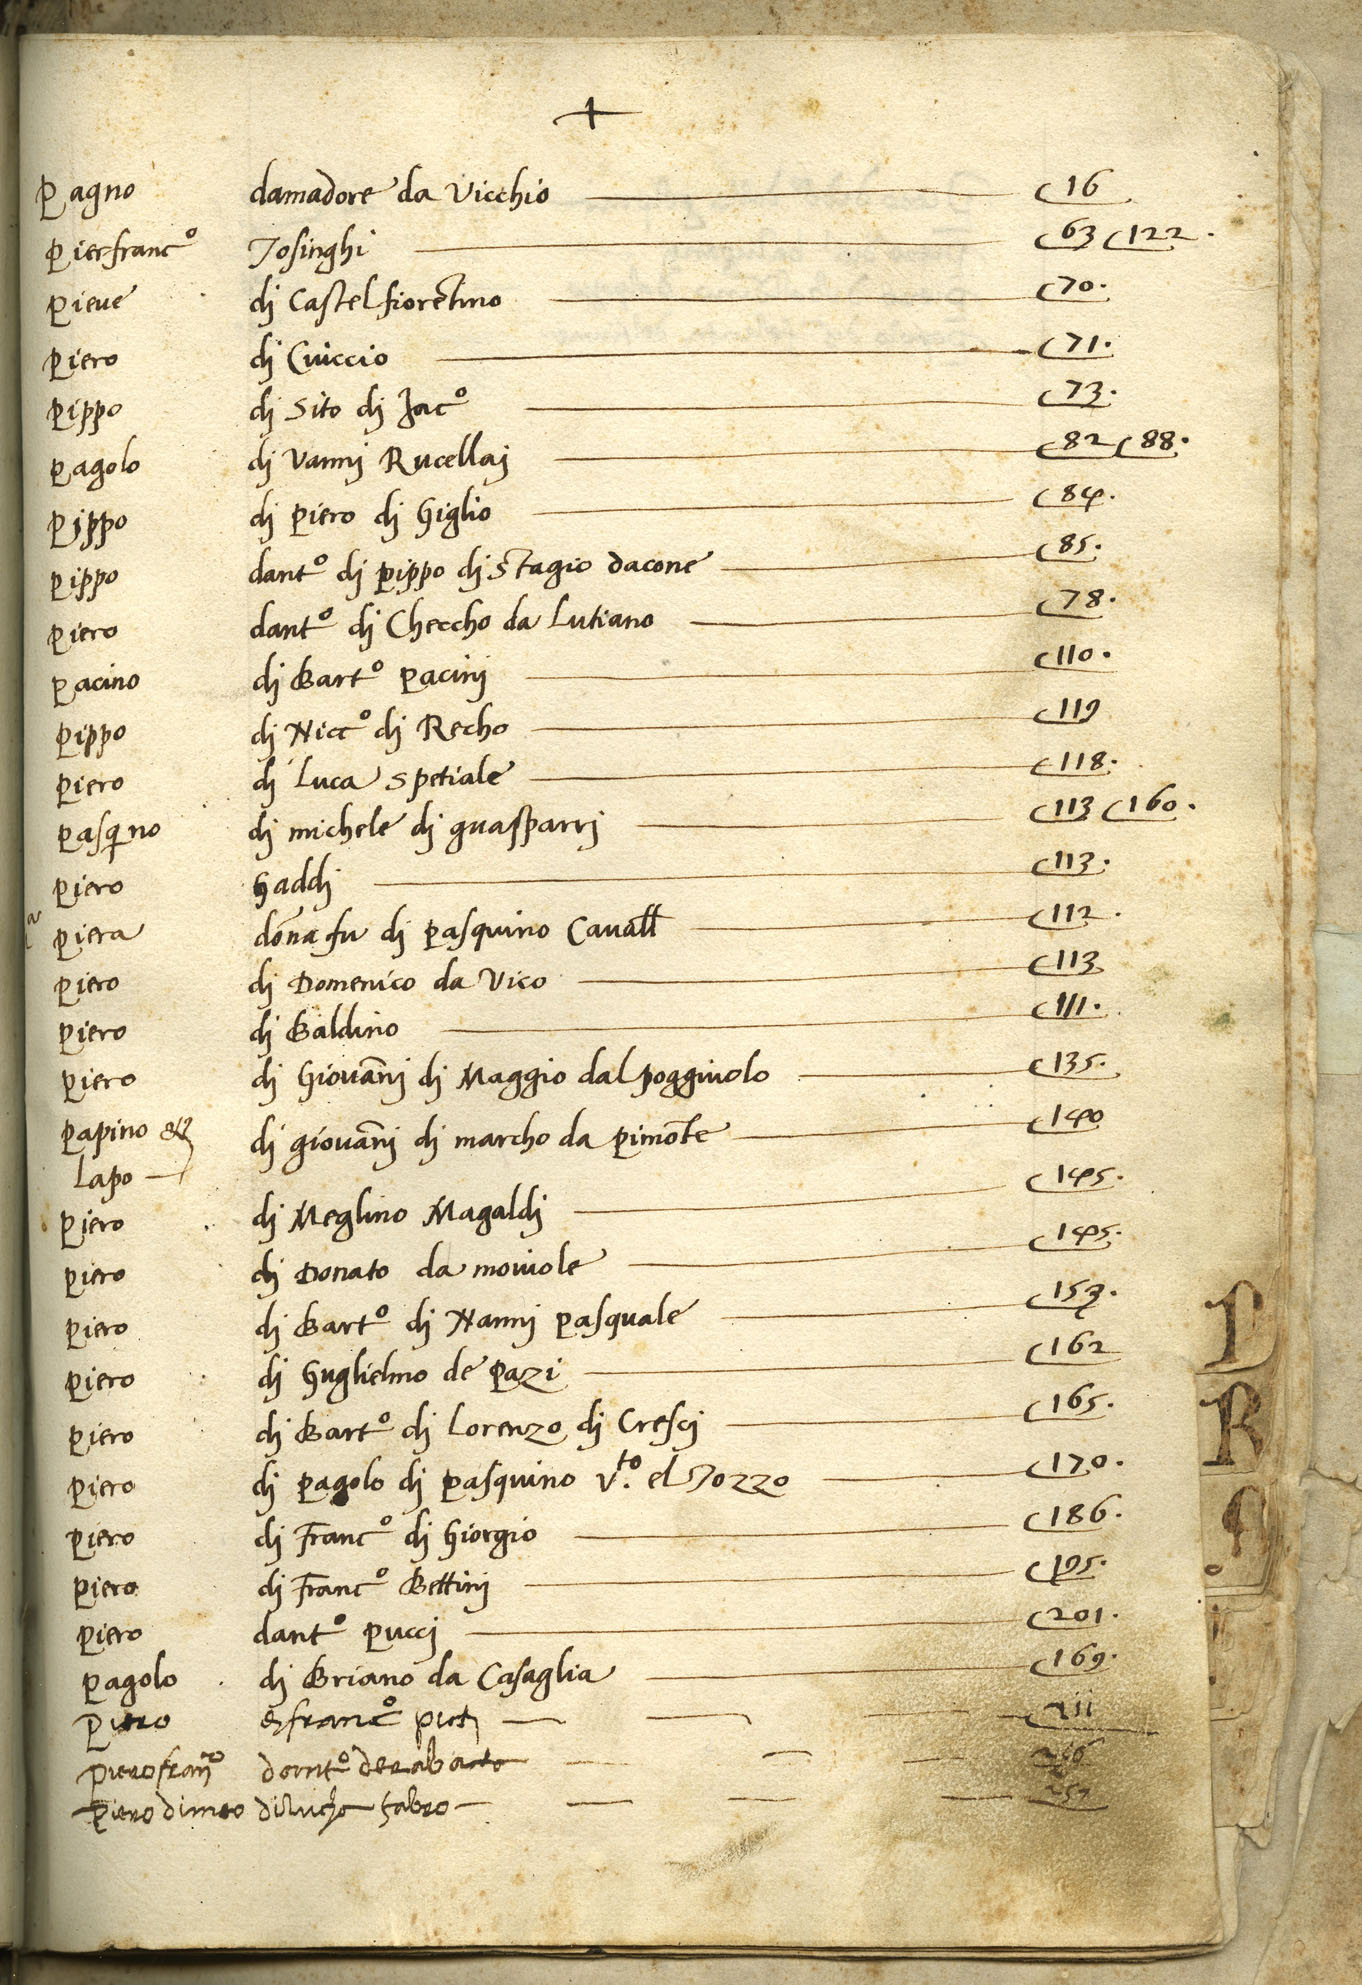 +
Pagno damadore da Vicchio c 16
Pierfranc.o Tosinghi c 63 c 122.
Pieue di Castelfiorentino c 70.
Piero di Ciuccio c 71.
Pippo di Sito di Jac.o c 73.
Pagolo di Vanni Rucellaj c 82 c 88.
Pippo di Piero di Giglio c 84.
Pippo dant.o di Pippo di Stagio dacone c 85.
Piero dant.o di Checcho da Lutiano c 78.
Pacino di Bart.o Pacini c 110.
Pippo di Nicc.o di Recho c 119
Piero di Luca Spetiale c 118.
Pasqino di michele di guasparri c 113 c 160.
Piero Gaddi c 113.
Piera dona fu di Pasquino Cauall c 112.
Piero di Domenico da Vico c 113
Piero di Baldino c 111.
Piero di Giouani di Maggio dal poggiuolo c 135.
Papino & di giouani di marcho da Pimote c 140
Lapo
Piero di Meglino Magaldi c 145.
Piero di Donato da moiiole c 145.
Piero di Bart.o di Nanni Pasquale c 153.
Piero di Guglielmo de Pazi c 162
Piero di Bart.o di Lorenzo di Cresci c 165.
Piero di Pagolo di Pasquino V.to el Tozzo c 170.
Piero di Franc.o di Giorgio c 186.
Piero di Franc.o Bettini c 195.
Piero dant.o Pucci c 201.
Pagolo di Briano da Casaglia c 169.
Piero franc.o 211
Pierofran.o dant.o 256
Piero dimeo fabro 257
P
R
Q